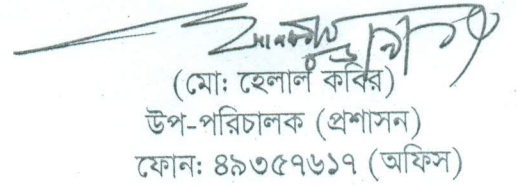 (মো: হেলাল কবির)
উপ-পরিচালক (প্রশাসন)
ফোন: ৪৯৩৫৭৬১৭ (অফিস)